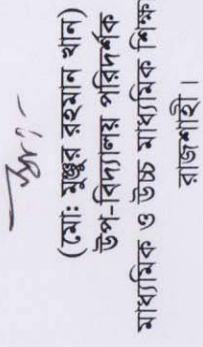 (মোঃ মুঞ্জুর রহমান খান)
উপ-বিদ্যালয় পরিদর্শক
মাধ্যমিক ও উচ্চ মাধ্যমিক শিক্ষ
রাজশাহী।